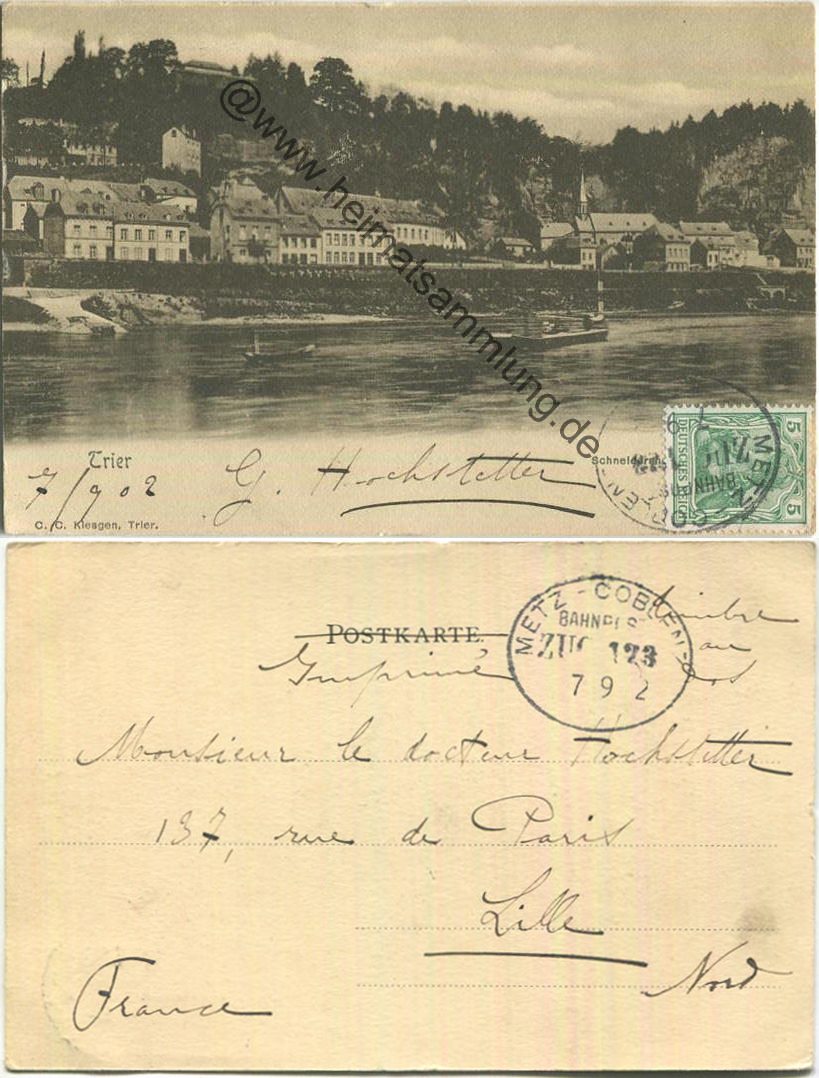 @www.heimatsammlung.de
Trier
7/9 02 G. Hochstetter
C. C. Kiesgen, Trier.
DEUTSCHES REICH
5 5
METZ
ZUG
BAHN
METZ - COBLEN
BAHNPOS
ZUG 123
7 9 2
POSTKARTE
Imprimé
Timbre
au
dos
Monsieur le docteur Hochstetter
137, rue de Paris
Lille
Nord
France